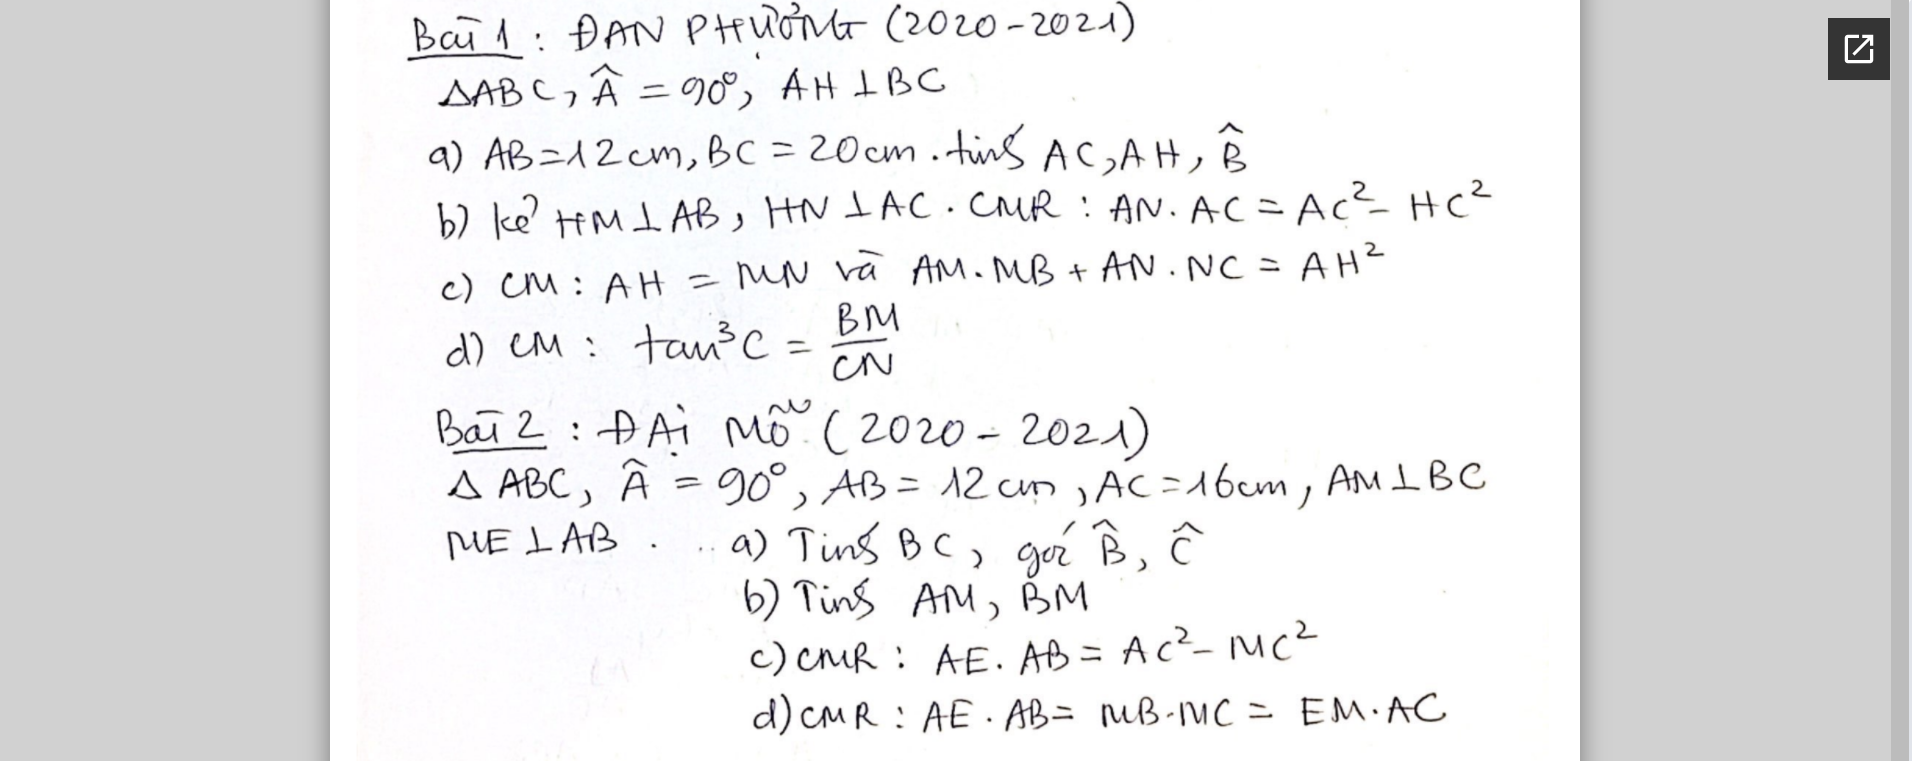 Bài 1 : ĐAN PHƯỢNG (2020-2021)
ΔABC, Â = 90°, AH ⊥ BC
a) AB = 12cm, BC = 20cm. tính AC, AH, B̂
b) kẻ HM ⊥ AB, HN ⊥ AC. CMR : AN. AC = AC² - HC²
c) CM : AH = MN và AM. MB + AN. NC = AH²
d) CM : tan³C = BM/CN
Bài 2 : ĐẠI MỖ (2020 - 2021)
Δ ABC, Â = 90°, AB = 12 cm, AC = 16cm, AM ⊥ BC
ME ⊥ AB . a) Tính BC, góc B̂, Ĉ
b) Tính AM, BM
c) CMR : AE. AB = AC² - MC²
d) CMR : AE . AB = MB. MC = EM. AC